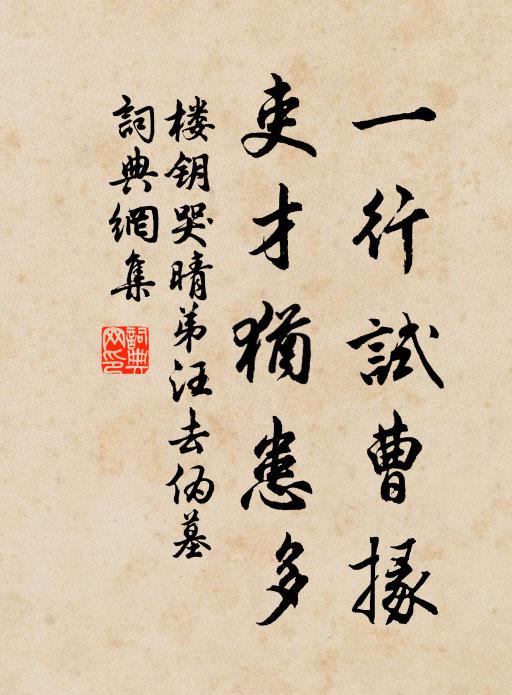 一行試曹掾
吏才猶患多
楼钥哭晴弟汪去伪墓
詞典網集
詞典网印